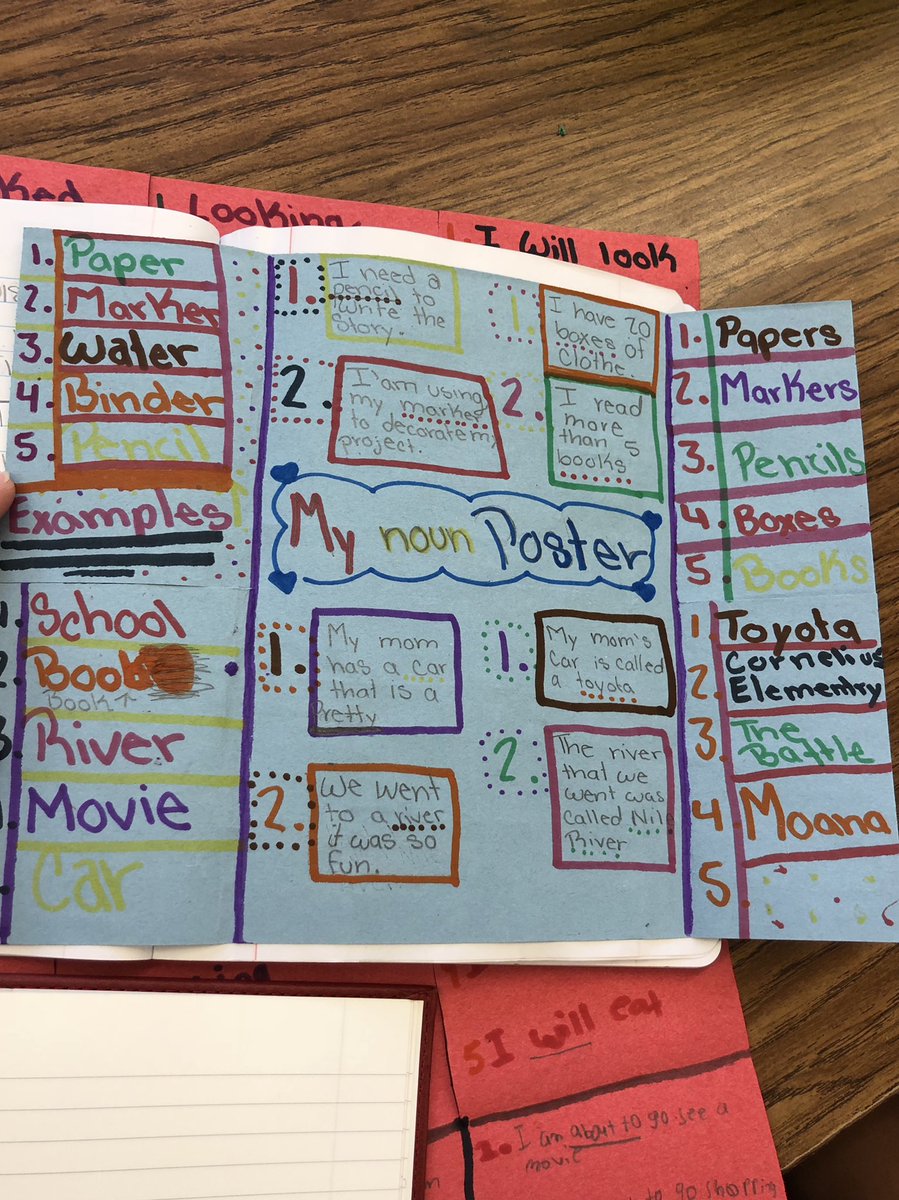 Looking
I will look
1. Paper
2. Marker
3. Water
4. Binder
5. Pencil
Examples
School
2. Book
Book
3. River
Movie
Car
1. I need a
pencil to
write the
Story.
2. I'am using
my marker
to decorate m
project.
1. I have 20
boxes of
Clothe.
2. I read
more
than 5
books
My noun Poster
1. My mom
has a car
that is a
Pretty
2. We went
to a river
it was so
fun.
1. My mom's
Car is called
a toyota
2. The river
that we
went was
called Nil
River
1. Papers
2. Markers
3. Pencils
4. Boxes
5. Books
1. Toyota
2. Cornelius
Elementry
3. The
Battle
4. Moana
5.
5 I will eat
2. I am about to go see a
movie
to go shopping